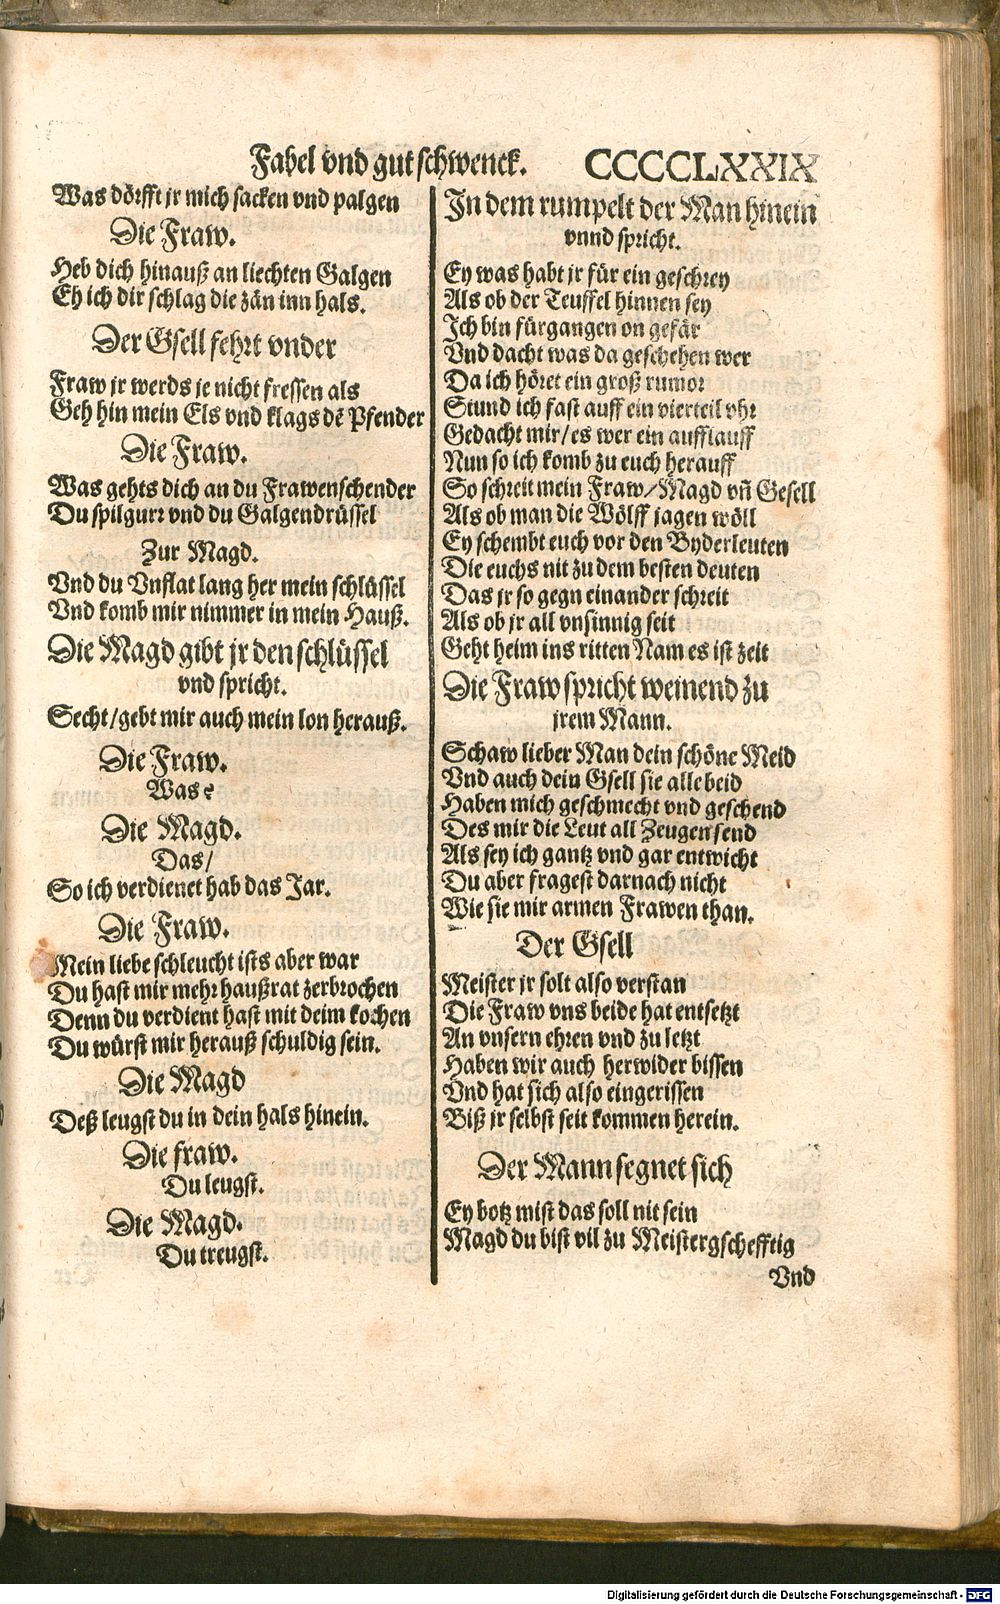 Fabel vnd gut schwenck. CCCCCLXXIX
Was dörfft jr mich sacken vnd palgen
Die Fraw.
Heb dich hinauß an liechten Galgen
Eh ich dir schlag die zän inn hals.
Der Gsell fehrt vnder
Fraw jr werds je nicht fressen als
Geh hin mein Els vnd klags dē Pfender
Die Fraw.
Was gehts dich an du Frawenschender
Du spilgurr vnd du Galgendrüssel
Zur Magd.
Vnd du Vnflat lang her mein schlüssel
Vnd komb mir nimmer in mein Hauß.
Die Magd gibt jr den schlüssel
vnd spricht.
Secht/gebt mir auch mein lon herauß.
Die Fraw.
Was?
Die Magd.
Das/
So ich verdienet hab das Jar.
Die Fraw.
Mein liebe schleucht ists aber war
Du hast mir mehr haußrat zerbrochen
Denn du verdient hast mit deim kochen
Du würst mir herauß schuldig sein.
Die Magd
Deß leugst du in dein hals hinein.
Die fraw.
Du leugst.
Die Magd.
Du treugst.
In dem rumpelt der Man hinein
vnnd spricht.
Ey was habt jr für ein geschrey
Als ob der Teuffel hinnen sey
Ich bin fürgangen on gefär
Vnd dacht was da geschehen wer
Da ich höret ein groß rumor
Stund ich fast auff ein vierteil vhr
Gedacht mir/es wer ein aufflauff
Nun so ich komb zu euch herauff
So schreit mein Fraw/Magd vñ Gesell
Als ob man die Wölff jagen wöll
Ey schembt euch vor den Byderleuten
Die euchs nit zu dem besten deuten
Das jr so gegn einander schreit
Als ob jr all vnsinnig seit
Geht heim ins ritten Nam es ist zeit
Die Fraw spricht weinend zu
jrem Mann.
Schaw lieber Man dein schöne Meid
Vnd auch dein Gsell sie alle beid
Haben mich geschmecht vnd geschend
Des mir die Leut all Zeugen send
Als sey ich gantz vnd gar entwicht
Du aber fragest darnach nicht
Wie sie mir armen Frawen than.
Der Gsell
Meister jr solt also verstan
Die Fraw vns beide hat entsetzt
An vnsern ehren vnd zu letzt
Haben wir auch herwider bissen
Vnd hat sich also eingerissen
Biß jr selbst seit kommen herein.
Der Mann segnet sich
Ey botz mist das soll nit sein
Magd du bist vil zu Meistergschefftig
Vnd
Digitalisierung gefördert durch die Deutsche Forschungsgemeinschaft - DFG